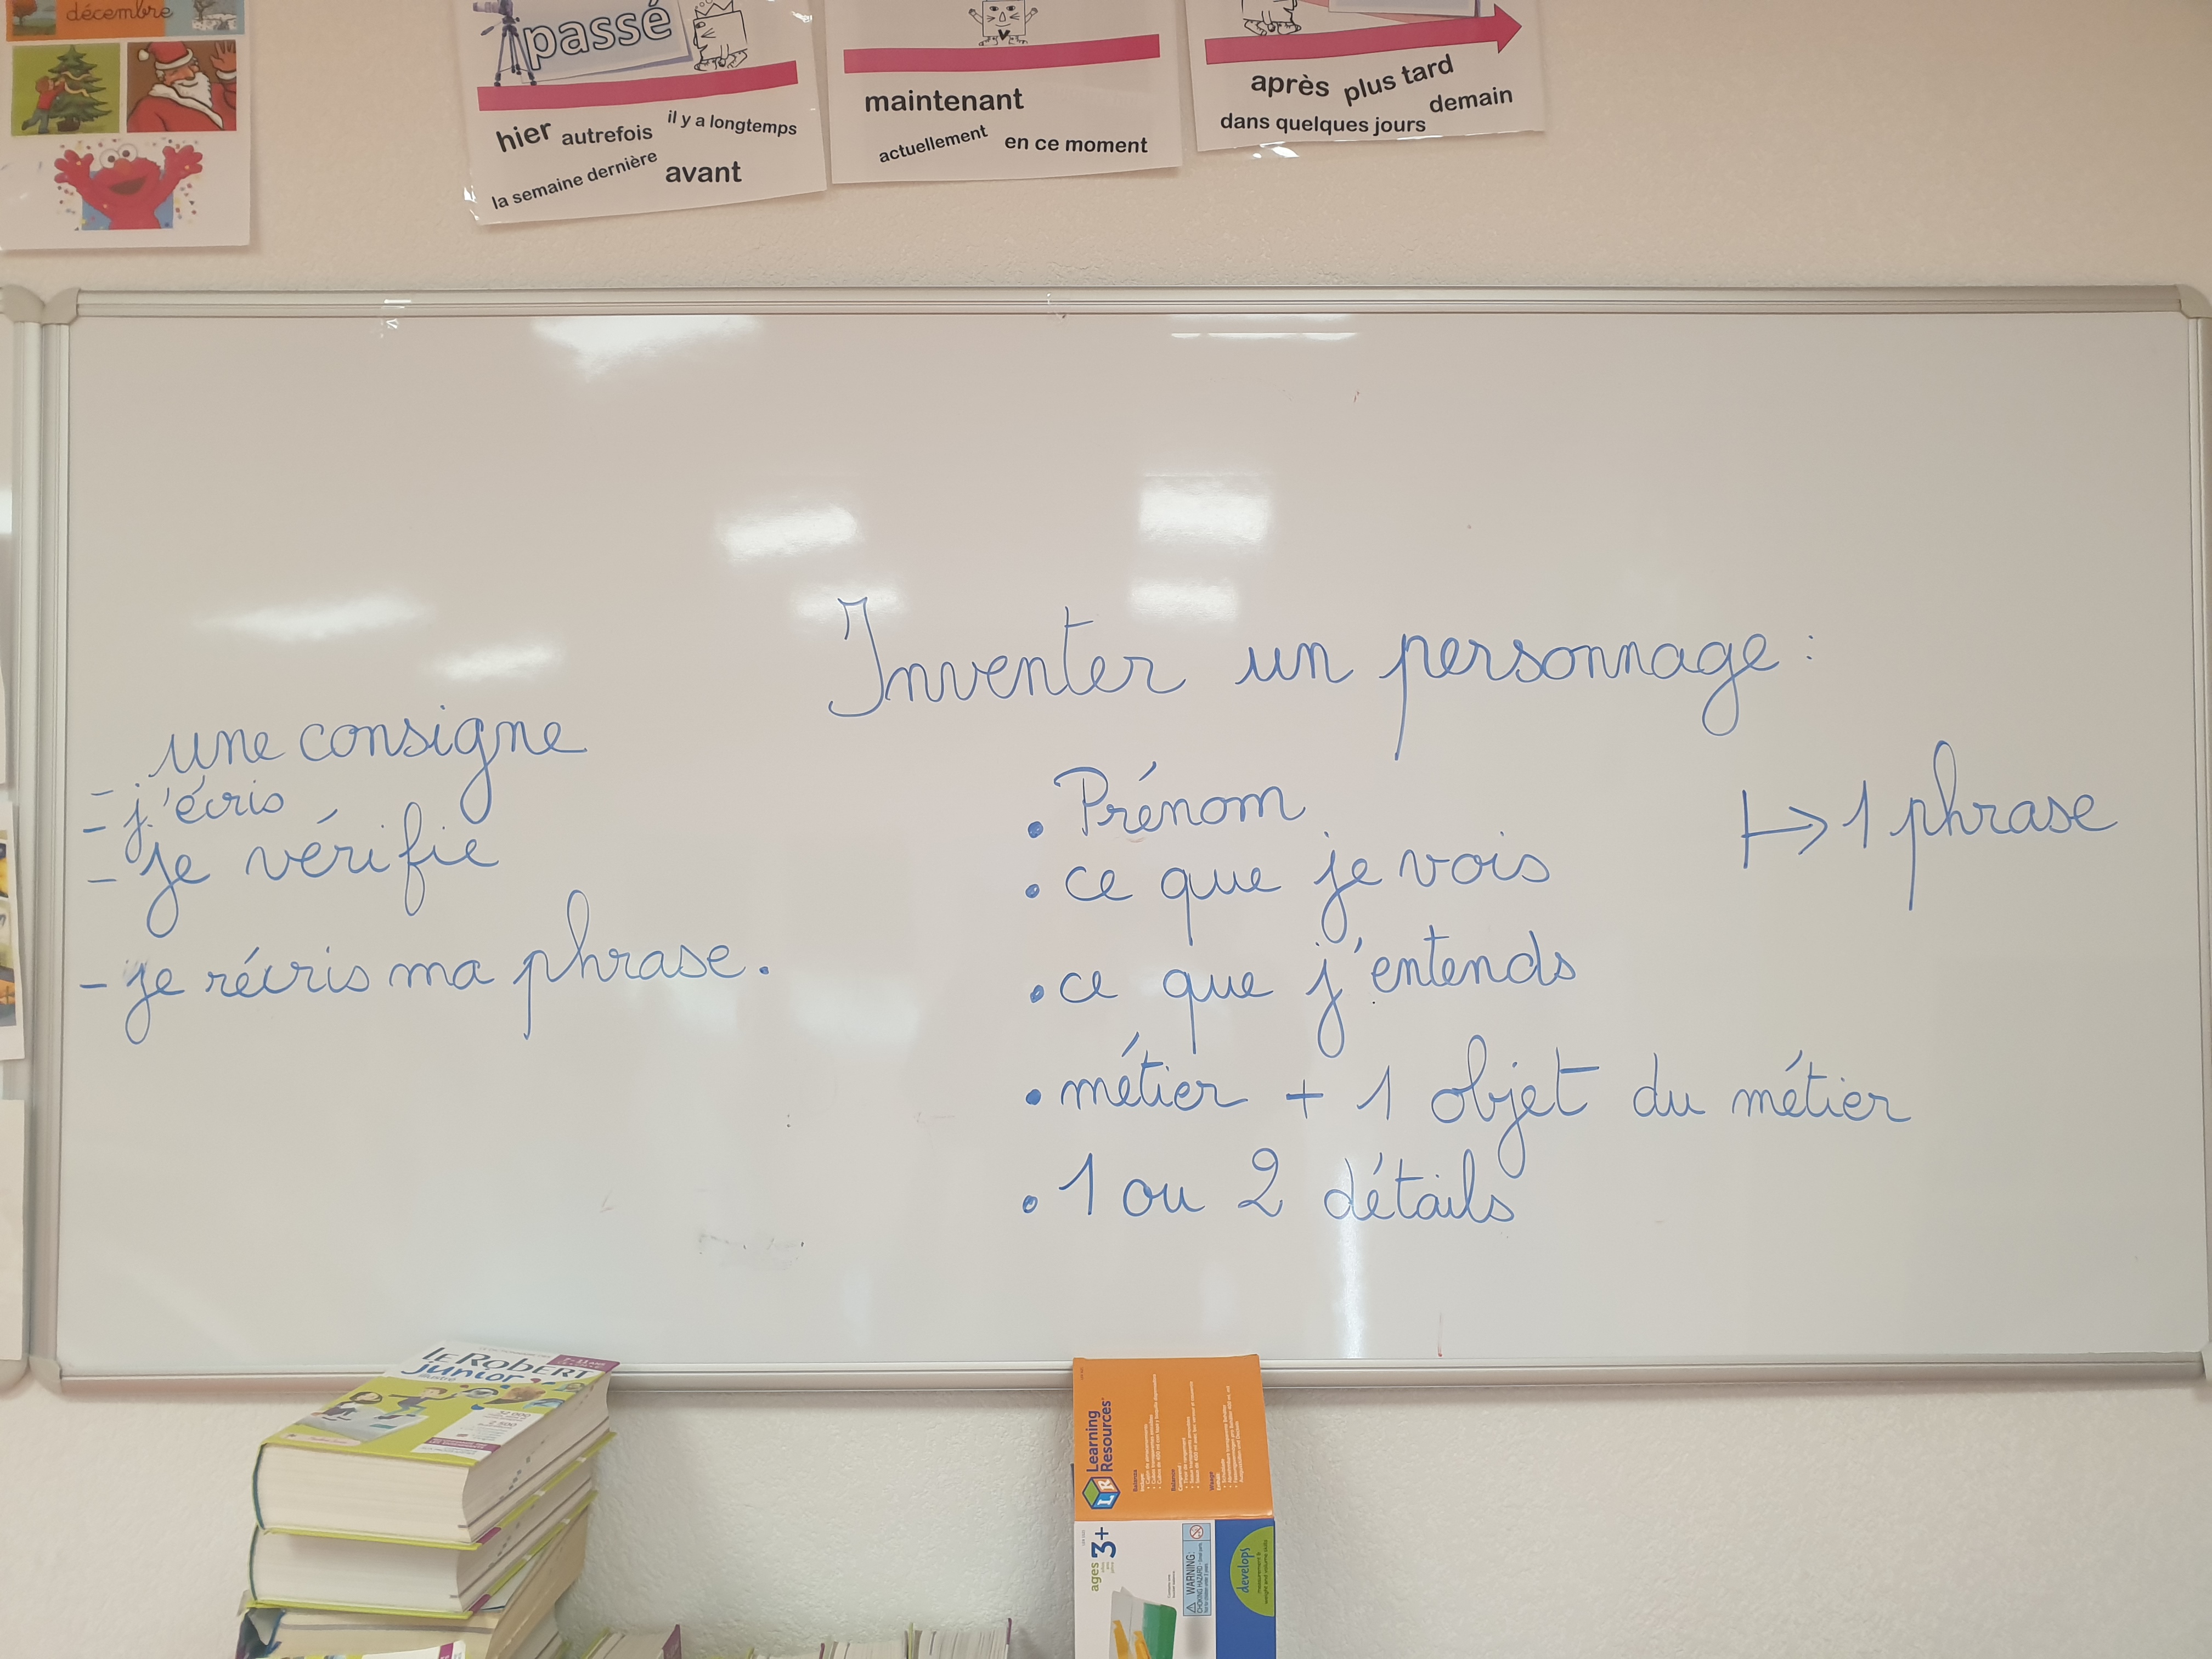 décembre
passé
hier autrefois il y a longtemps
la semaine dernière avant
maintenant
actuellement en ce moment
après plus tard
dans quelques jours demain
Inventer un personnage :
une consigne
- j'écris
- je vérifie
- je réécris ma phrase.
• Prénom
↦ 1 phrase
• ce que je vois
• ce que j'entends
• métier + 1 objet du métier
• 1 ou 2 détails
LE ROBERT
junior
illustré
Learning
Resources
ages 3+
WARNING:
develops